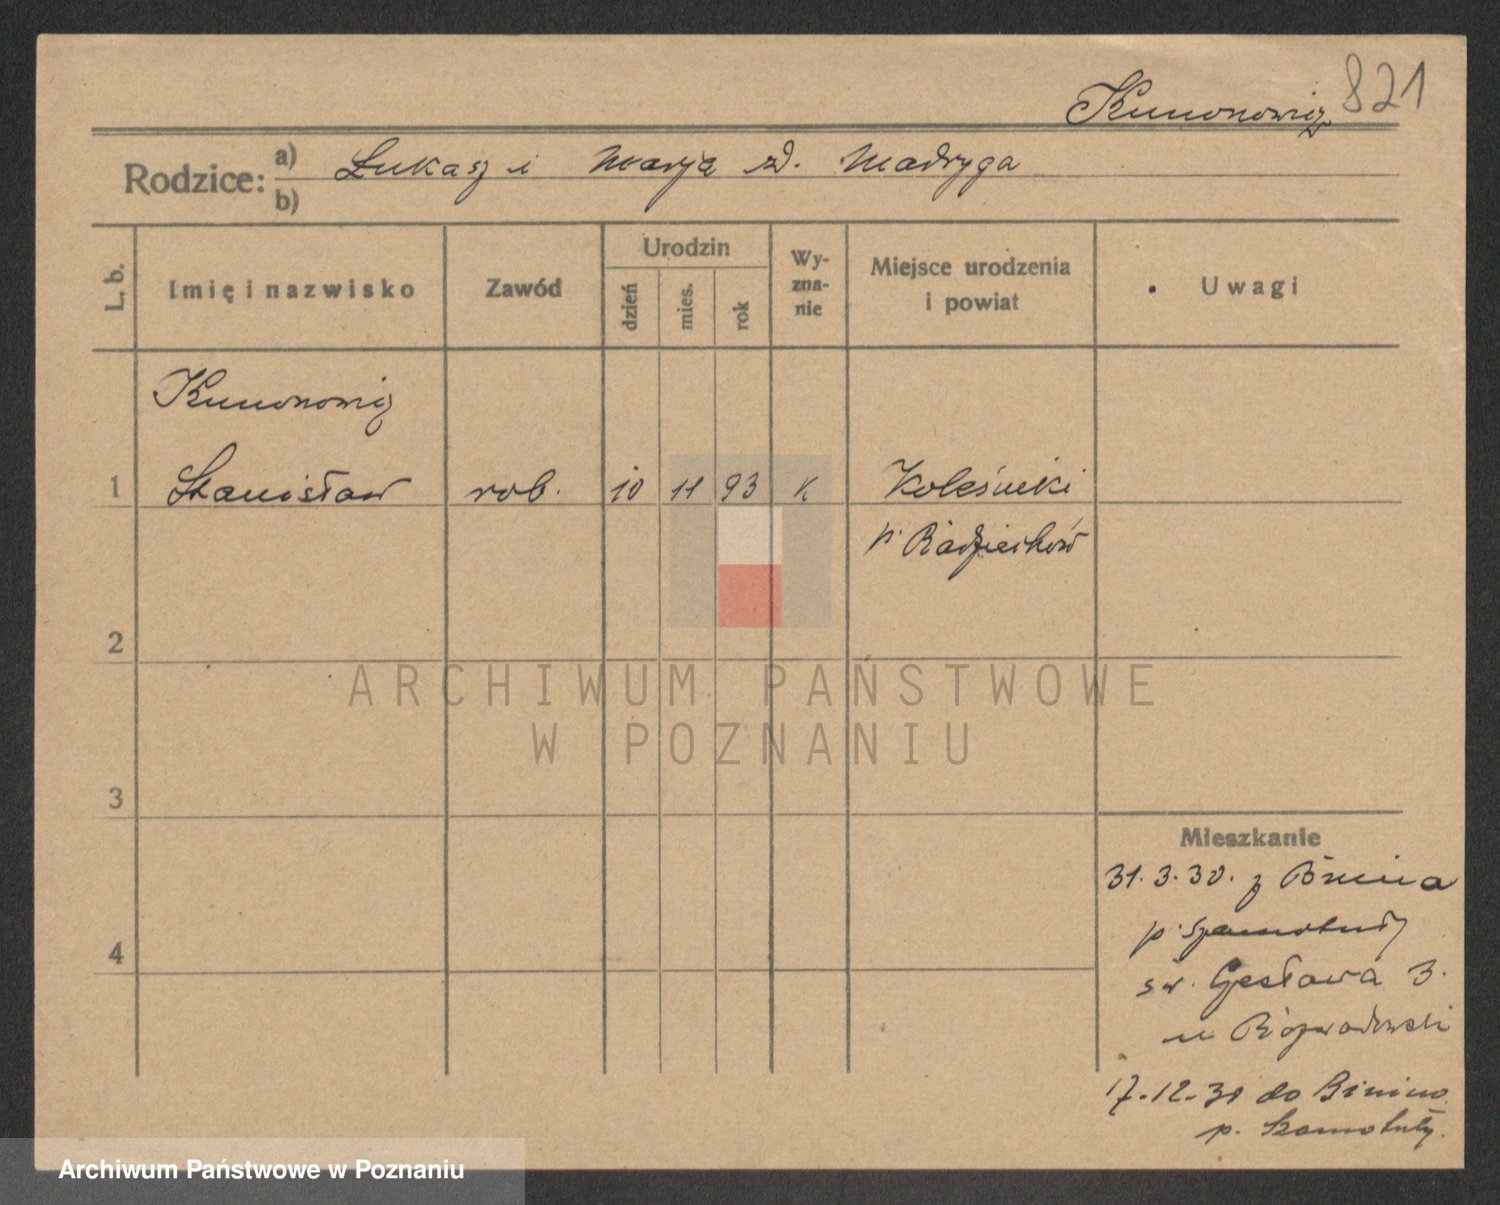 821
Kunonowicz
Rodzice: a) Łukasz i Marja zd. Madryga
b)
L. b.
Imię i nazwisko
Zawód
Urodzin
dzień
mies.
rok
Wy-
zna-
nie
Miejsce urodzenia
i powiat
Uwagi
Kunonowicz
1 Stanisław rob. 10 11 93 K Koleśniki
p. Radziechów
2
3
4
Mieszkanie
31.3.30. z Binina
p. Szamotuły
św. Czesława 3.
u Rozwadowski
17-12-31 do Binino
p. Szamotuły.
ARCHIWUM PAŃSTWOWE
W POZNANIU
Archiwum Państwowe w Poznaniu